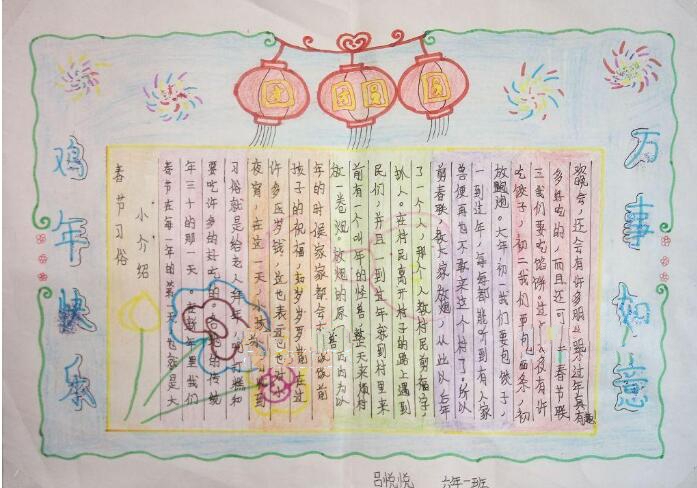 团团圆圆
鸡年快乐
万事如意
春节习俗
小介绍
春节在每一年的第一天也就是大
年三十的那一天。在新年里我们
要吃许多的好吃的。各地的传统
习俗就是给老人拜年
夜宵，在这一天，小孩
许多压岁钱，这也表
孩子的祝福，岁岁平
年的时候家家都会
放一卷炮。放炮的原
前有一个叫年的怪兽，整天来烦村
民们，并且一到过年就到村里来
抓人。在村民离开村子的路上遇到
了一个人，那个人教村民剪福字
剪春联，教大家放炮，从此以后年
兽便再也不敢来这个村了，所以
一到过年，每每都能听到有人家
放鞭炮。大年初一我们要包饺子，
吃饺子，初二我们要吃面条，初
三我们要吃馅饼。过年还有许
多好吃的，而且还可以 春节联
欢晚会，还会有许多朋 过年真有
趣
吕悦悦 六年一班